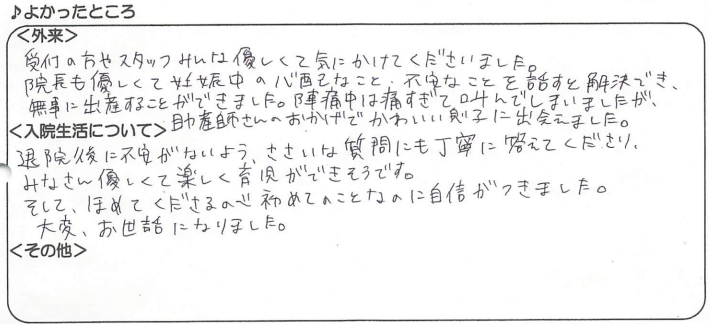 ♪よかったところ
<外来>
受付の方やスタッフみんな優しくて気にかけてくださいました。
院長も優しくて妊娠中の心配なこと・不安なことを話すと解決でき、
無事に出産することができました。陣痛中は痛すぎて叫んでしまいましたが、
助産師さんのおかげでかわいい息子に出会えました。
<入院生活について>
退院後に不安がないよう、ささいな質問にも丁寧に答えてくださり、
みなさん優しくて楽しく育児ができそうです。
そして、ほめてくださるので初めてのことなのに自信がつきました。
大変、お世話になりました。
<その他>